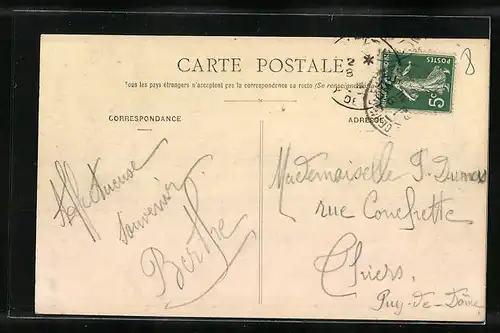 CARTE POSTALE
Tous les pays étrangers n'acceptent pas la correspondance au recto (Se renseigner
CORRESPONDANCE
ADRESSE
POSTES
5c
8
Affectueuse
souvenir
Berthe
Mademoiselle P. Dumas
rue Conchette
Thiers.
Puy-de-Dôme